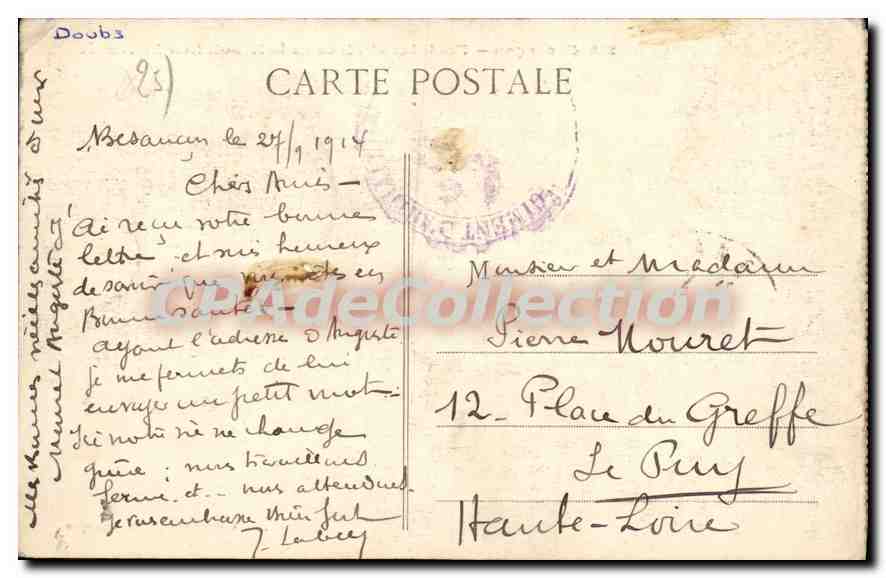 Doubs
25)
CARTE POSTALE
Besançon le 27/9 1914
Chers Amis –
J'ai reçu votre bonne
lettre et suis heureux
de savoir que vous êtes en
Bonne santé –
ayant l'adresse d'Auguste
je me permets de lui
envoyer un petit mot –
Ici notre vie ne change
guère ; nous travaillons
ferme et – nous attendons.
Je vous embrasse bien fort
Mes Bonnes amitiés à
Auguste
RÉGIMENT D'
CPAdeCollection
Monsieur et Madame
Pierre Mouret
12 – Place du Greffe
Le Puy
Haute-Loire